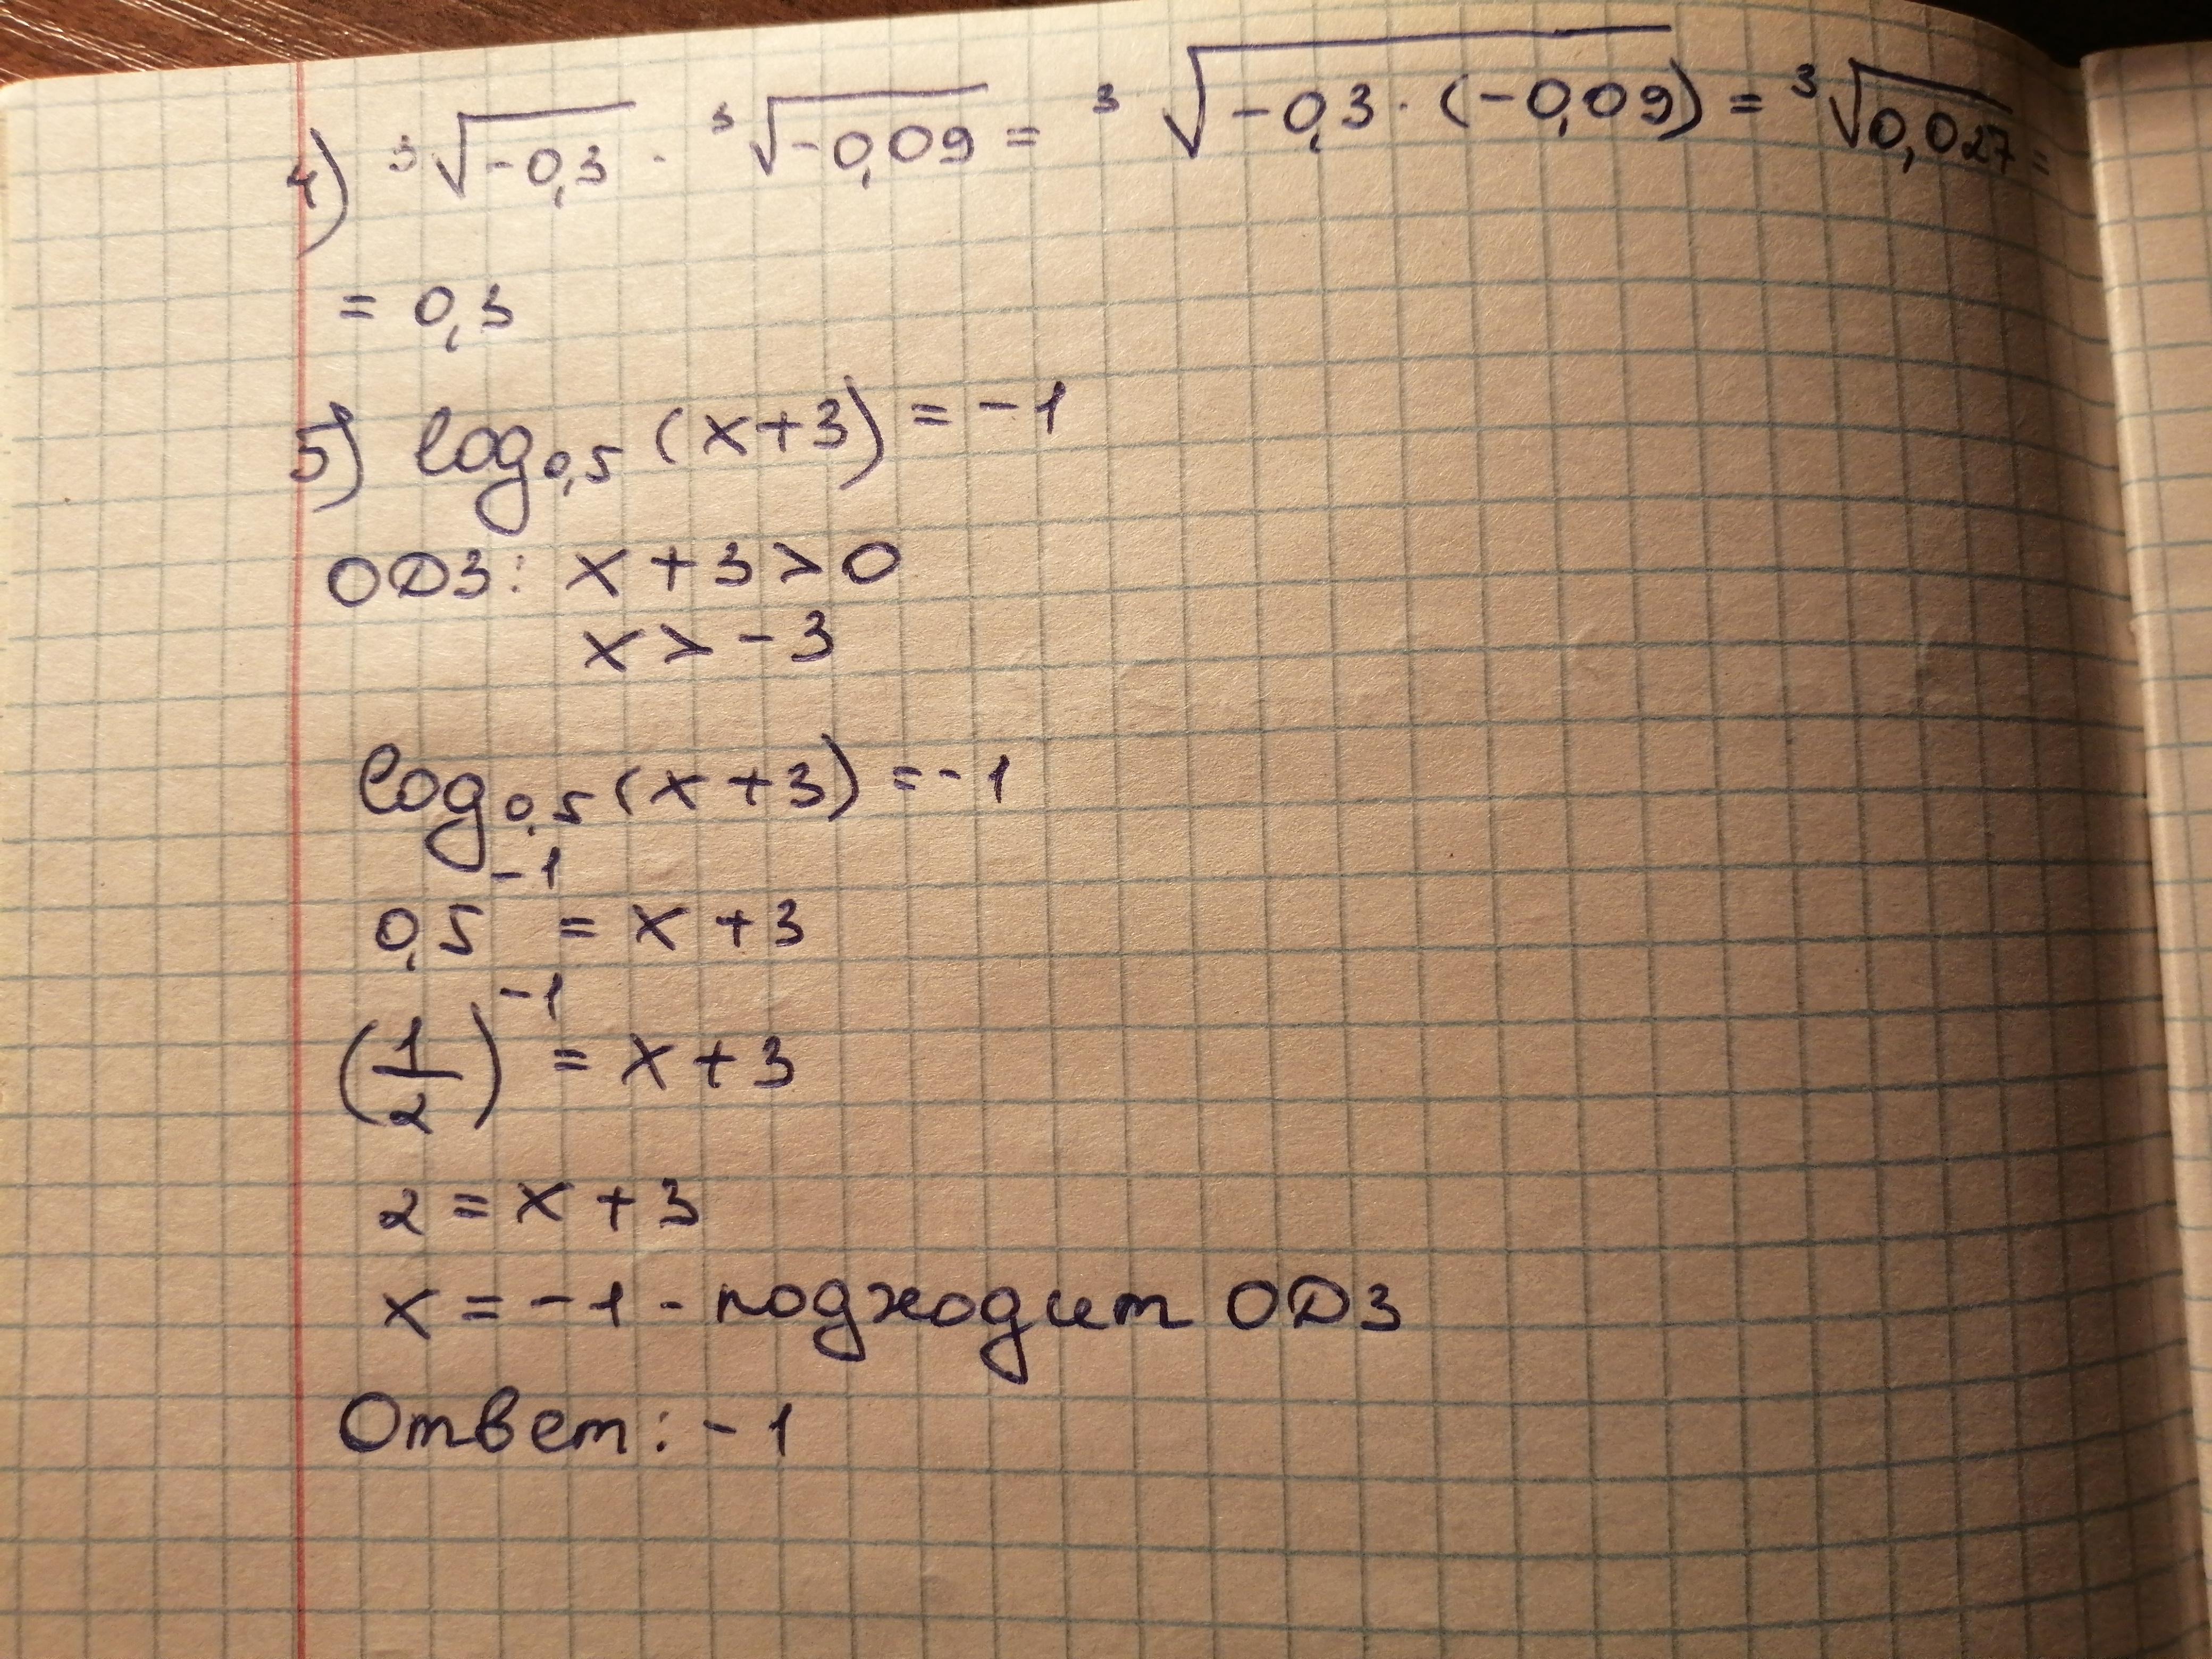 4) ³√-0,3 · ³√-0,09 = ³√-0,3 · (-0,09) = ³√0,027 =
= 0,3
5) log₀,₅ (x+3) = -1
ОДЗ: x + 3 > 0
x > -3
log₀,₅ (x+3) = -1
0,5⁻¹ = x + 3
(1/2)⁻¹ = x + 3
2 = x + 3
x = -1 - подходит ОДЗ
Ответ: -1